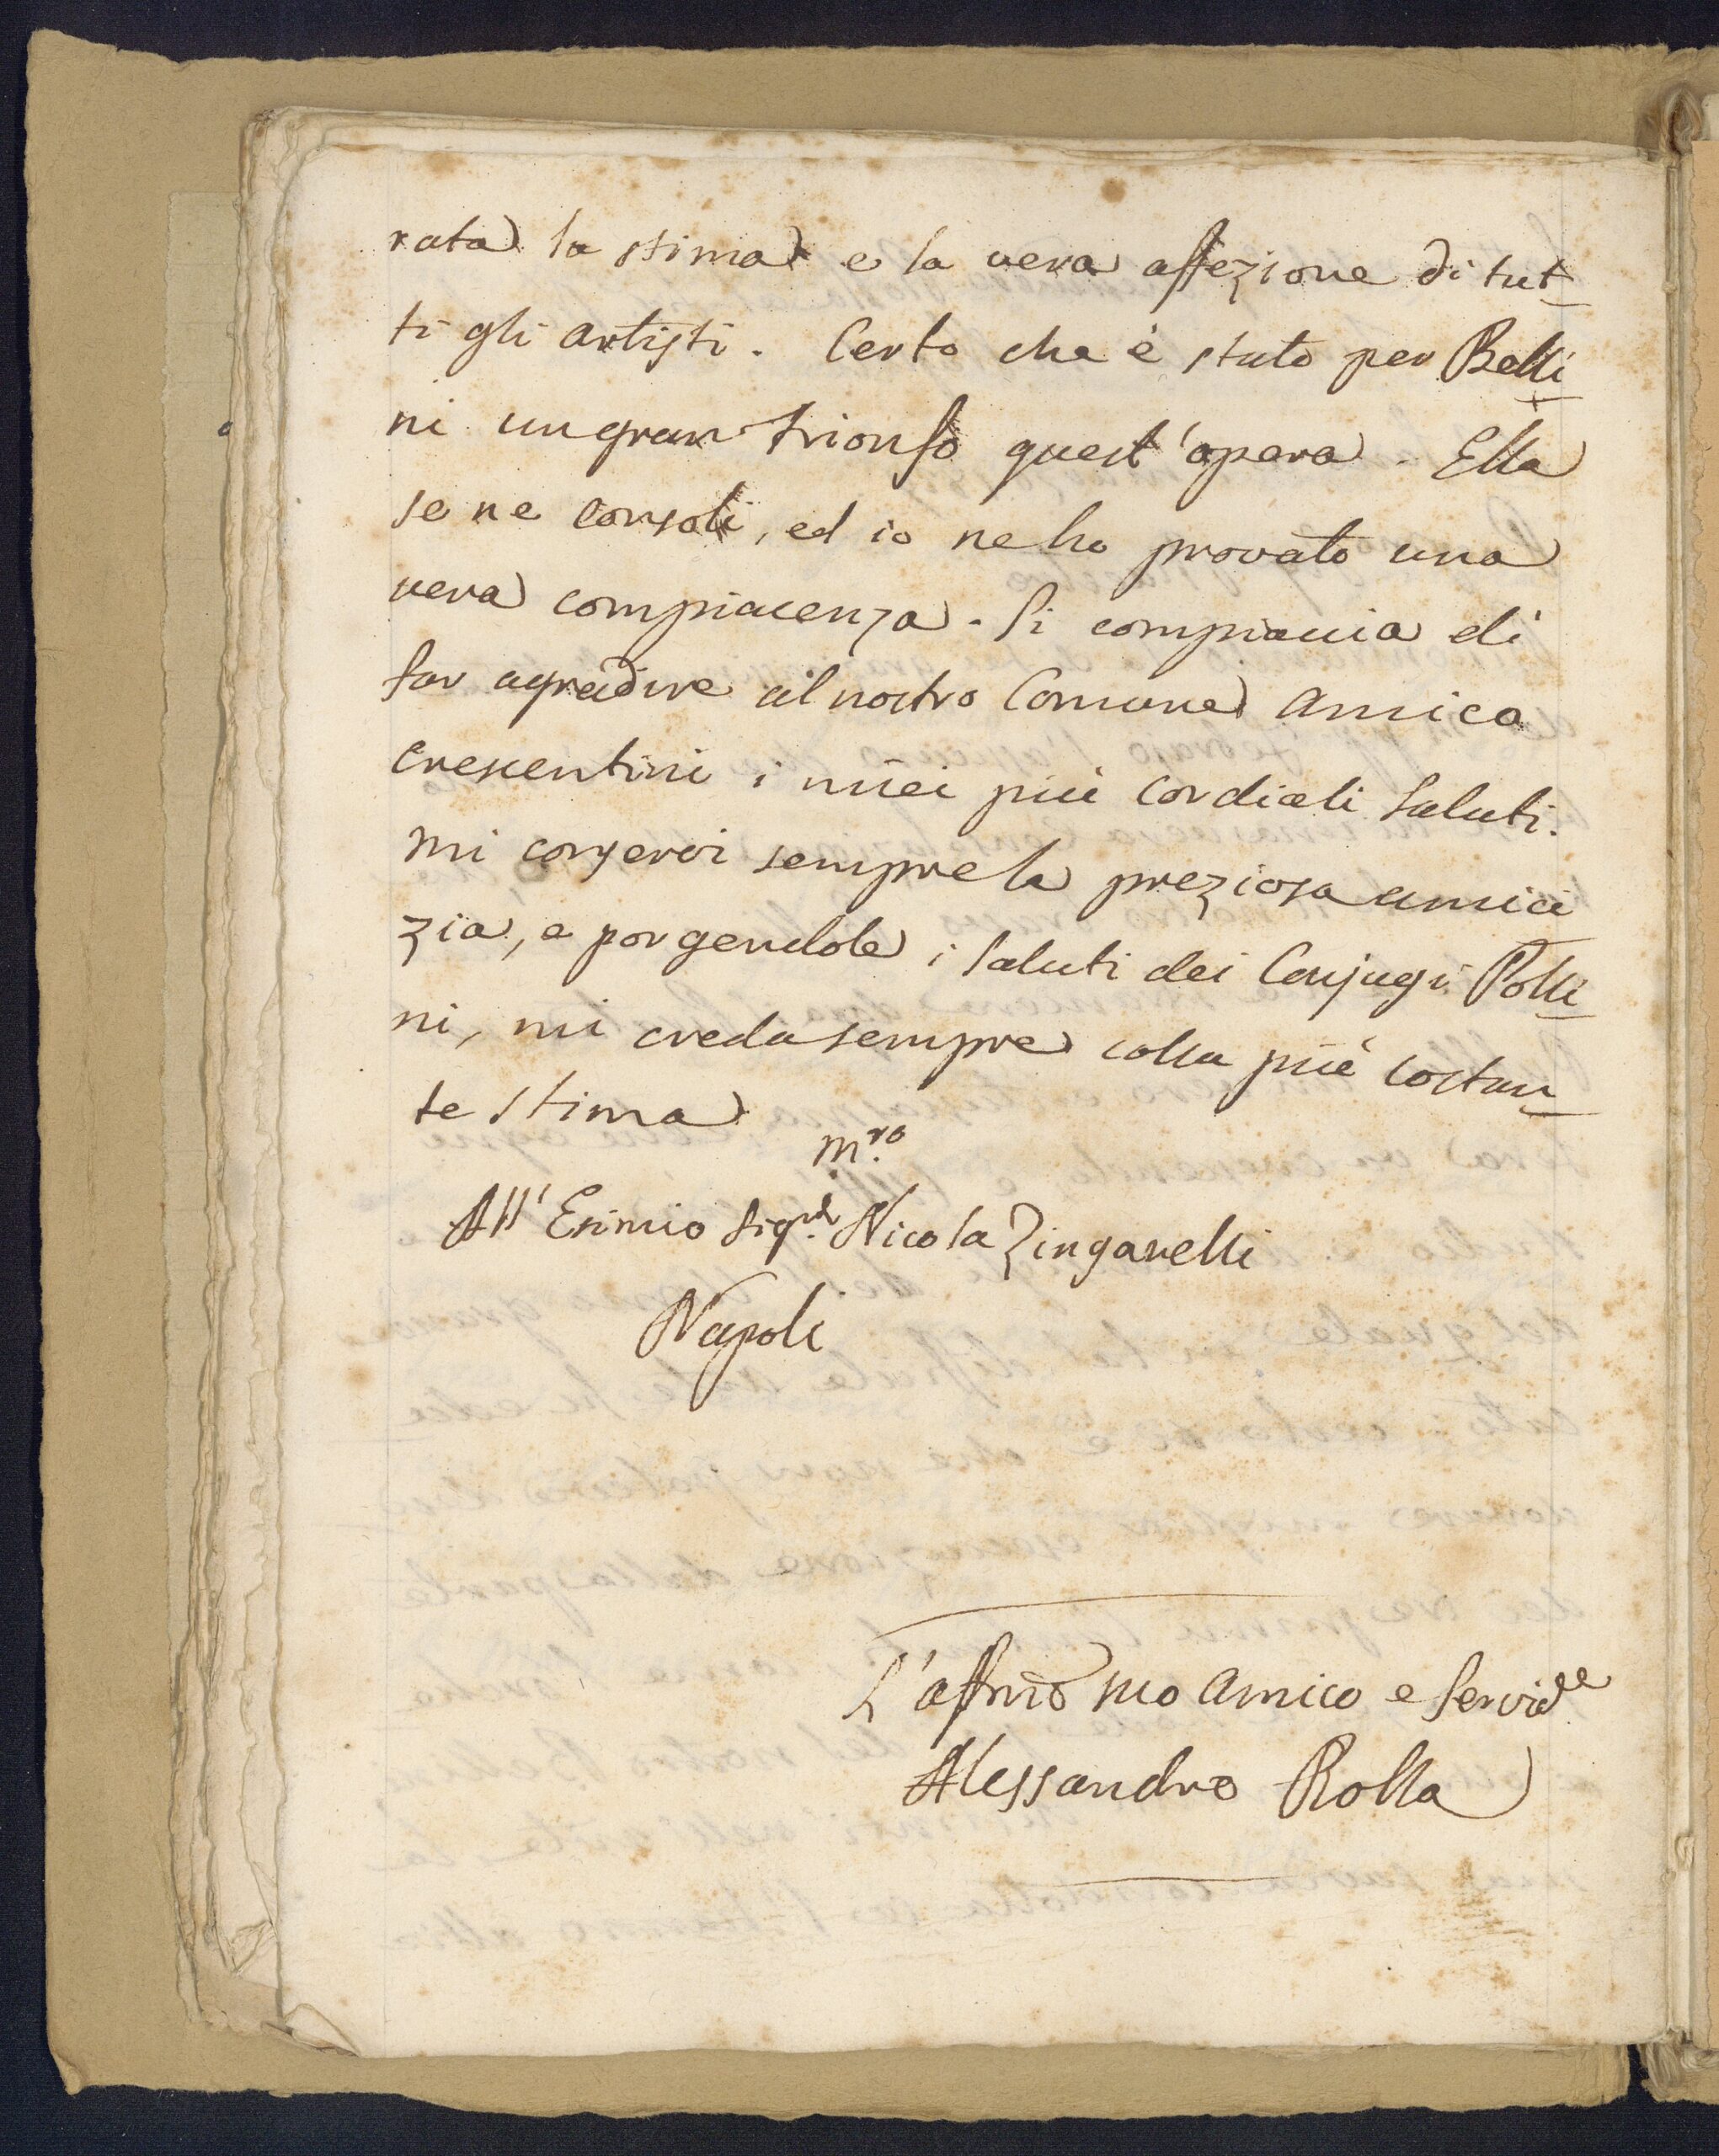 rata la stima e la vera affezione di tut-
ti gli artisti. Certo che è stato per Belli-
ni un gran trionfo quest'opera. Ella
se ne consoli, ed io ne ho provato una
vera compiacenza. Si compiaccia di
far agradire al nostro Comune Amico
Crescentini i miei più cordiali saluti.
Mi conservi sempre la preziosa amici-
zia, e porgendole i saluti dei Conjugi Polli-
ni, mi creda sempre colla più costan-
te stima
M.ro
All' Esimio Sig.r Nicola Zingarelli
Napoli
L'affmo suo Amico e Servid.e
Alessandro Rolla